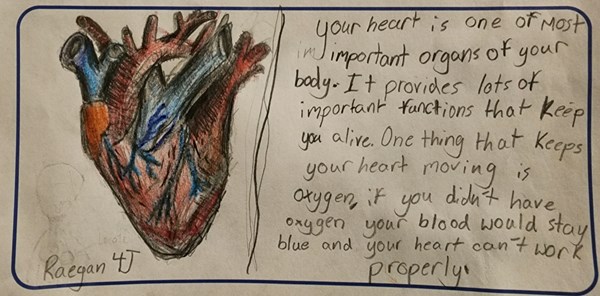 your heart is one of Most
important organs of your
body. It provides lots of
important functions that keep
you alive. One thing that keeps
your heart moving is
oxygen, if you didn't have
oxygen your blood would stay
blue and your heart can't work
properly.
Raegan 4J